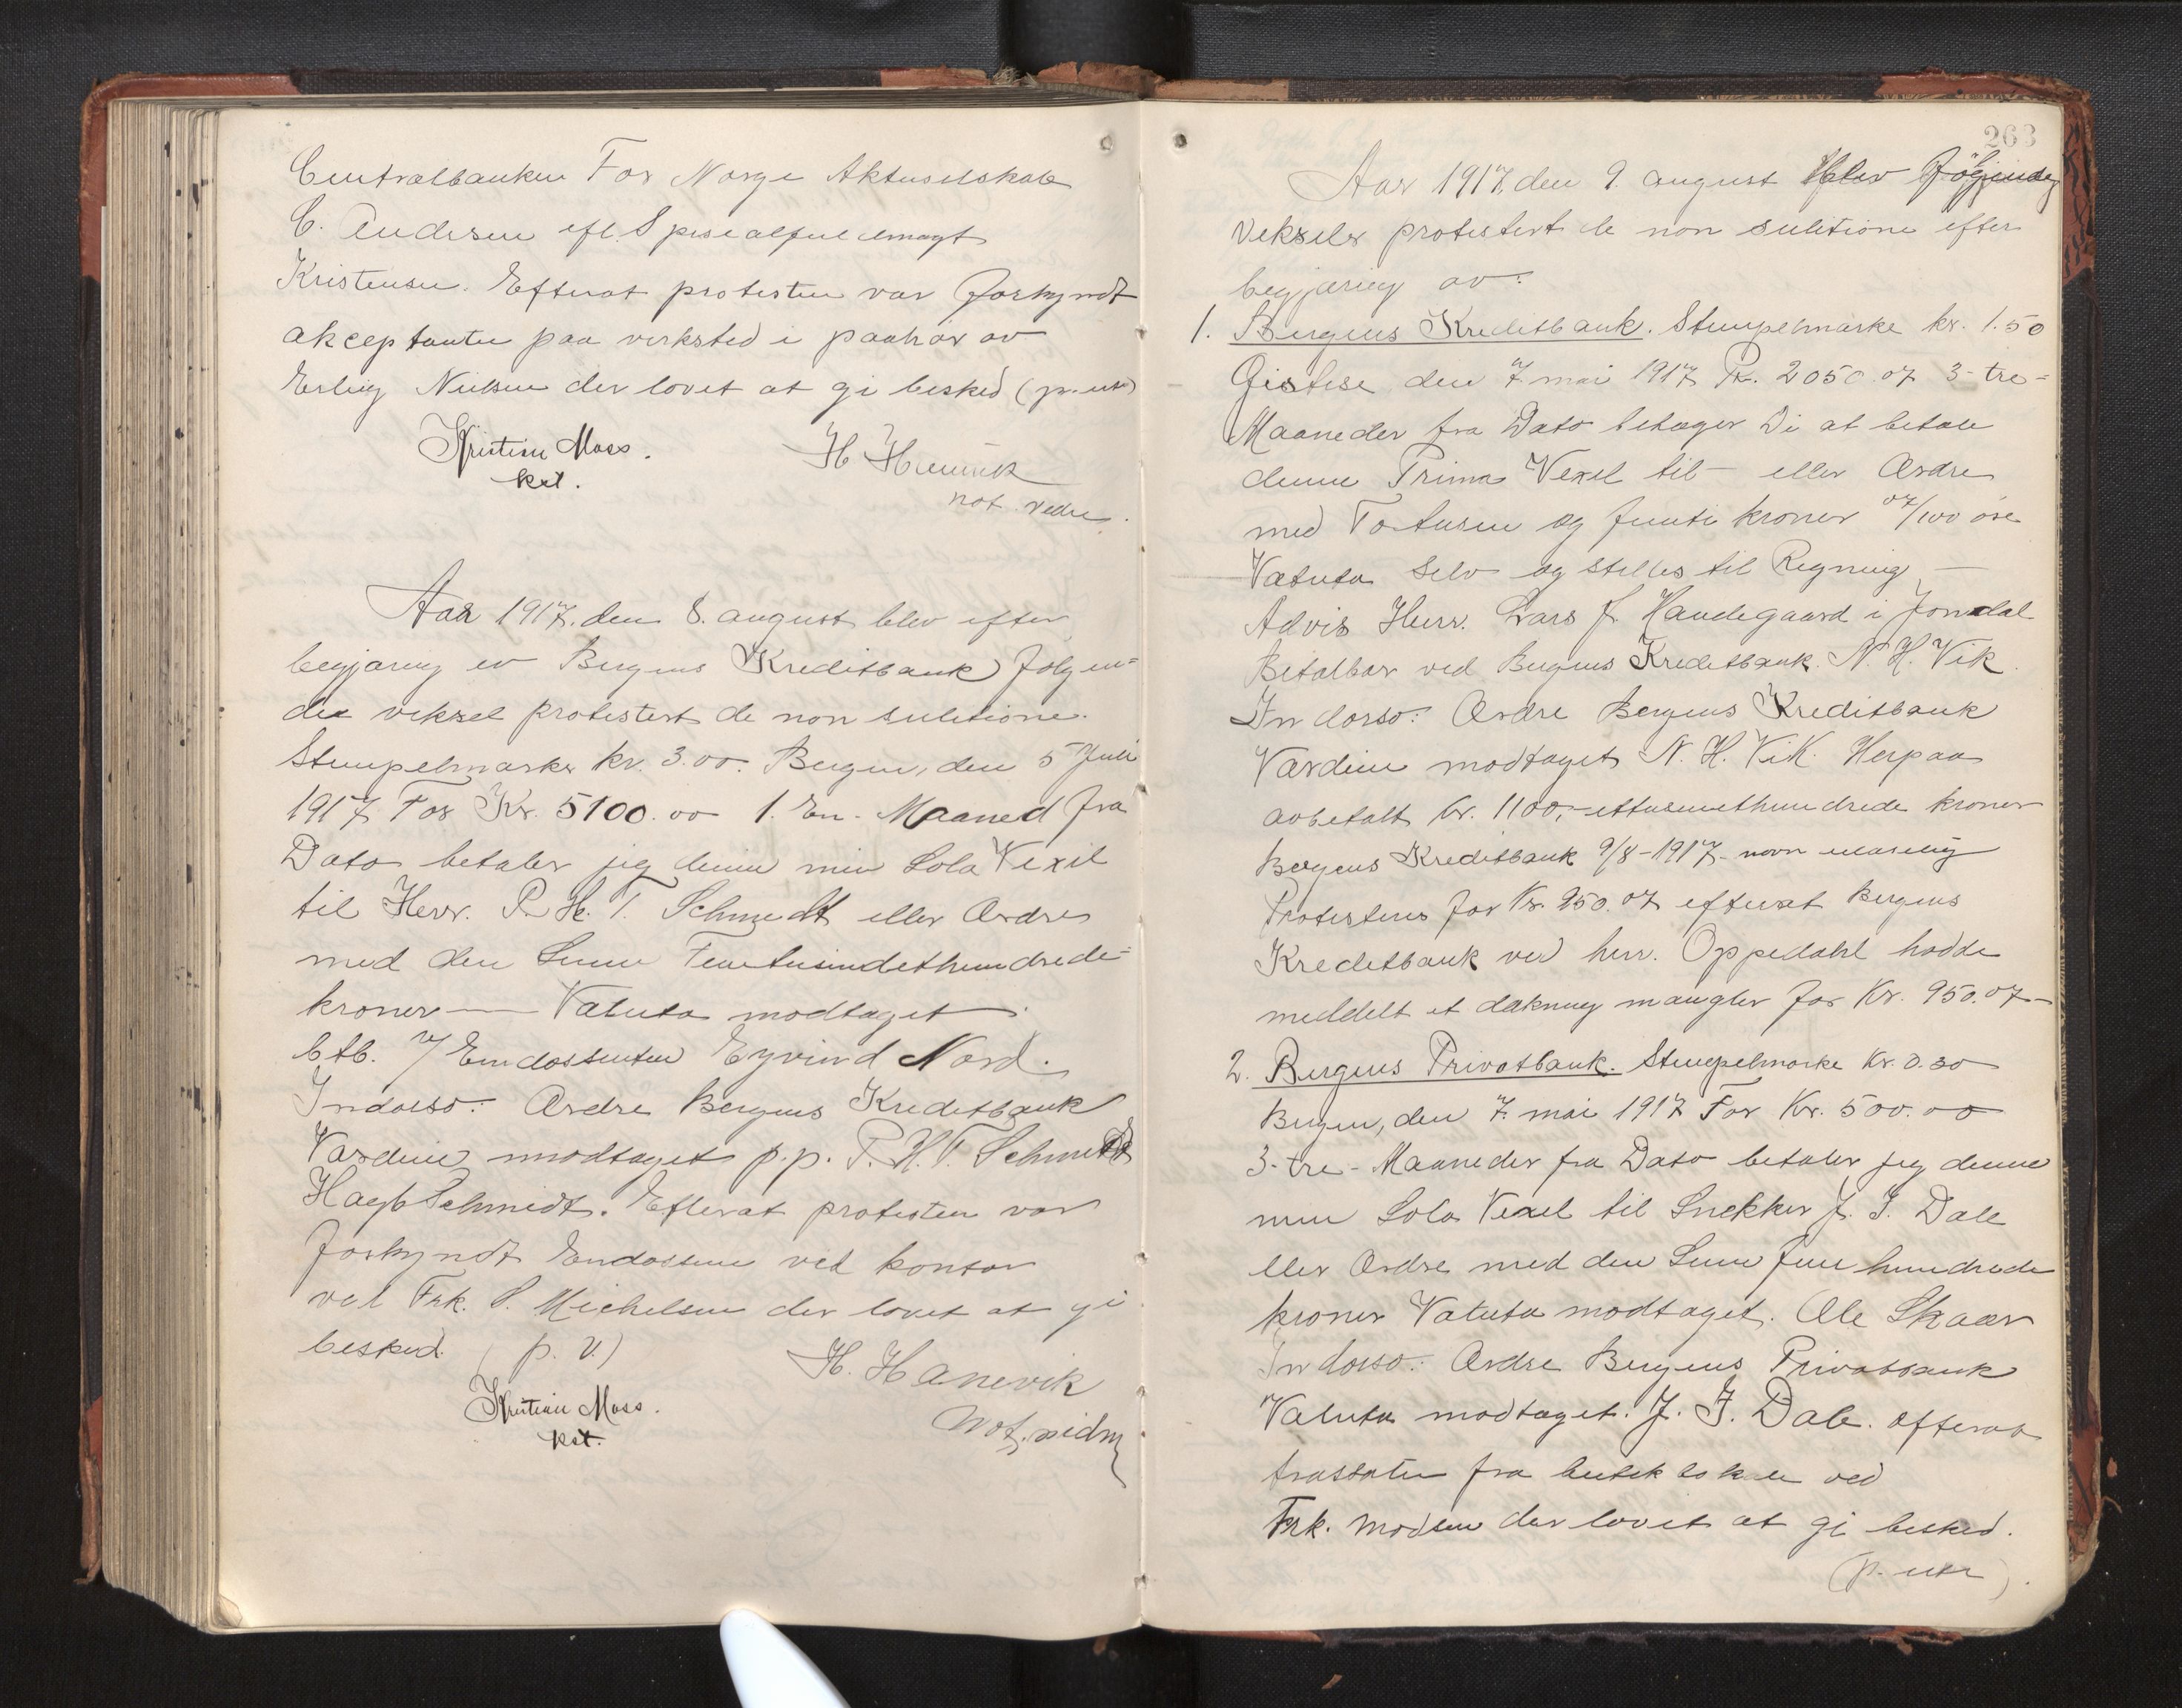 Centralbanken For Norge Aktieselskab
C. Andersen efl. Spesialfuldmagt
Kristensen. Efterat protesten var forkyndt
akceptanten paa verksted i paahør av
Erling Nielsen der lovet at gi besked (p. utr)
Kristian Moss. H Hanevik
kst. not. vidne.
Aar 1917. den 8. august blev efter
begjæring av Bergens Kreditbank følgen=
de veksel protestert de non solutione.
Stempelmærke kr. 3.00. Bergen, den 5 Juli
1917 For Kr. 5100.00 1. En. Maaned fra
Dato betaler jeg denne min Sola Vexel
til Herr. P. H. T. Schmidt eller Ordre
med den Sum Femtusindethundrede=
kroner — Valuta modtaget.
btb. v/ Endossenten Eyvind Nord.
Indorso: Ordre Bergens Kreditbank
Værdien modtaget p.p. P. H. T. Schmidt
Hagb Schmidt. Efterat protesten var
forkyndt Endossenten ved kontor
ved Frk. S. Michelsen der lovet at gi
besked. (p. v.)
H. Hanevik
Kristian Moss. Not. vidne
kst.
263
Aar 1917, den 9. august blev følgende
veksler protestert de non solutione efter
begjæring av:
1. Bergens Kreditbank. Stempelmærke kr. 1.50
Gistese den 7 mai 1917 Kr. 2050.07 3- tre=
Maaneder fra Dato behager Di at betale
denne Prima Vexel til — eller Ordre
med Totusen og femti kroner 07/100 øre
Valuta selv og stilles til Regning —
Advis Herr. Lars J. Handegaard i Jondal
Betalbar ved Bergens Kreditbank. N. H. Vik.
Indorso: Ordre Bergens Kreditbank
Værdien modtaget N. H. Vik. Herpaa
avbetalt kr. 1100,- ettusenethundrede kroner
Bergens Kreditbank 9/8-1917- navn ulæselig
Protesteres for Kr. 950.07 efterat Bergens
Kreditbank ved herr. Oppedahl hadde
meddelt at dækning mangler for Kr. 950.07—
2. Bergens Privatbank. Stempelmærke Kr. 0.30
Bergen, den 7. mai 1917 For Kr. 500.00
3-tre- Maaneder fra Dato betaler jeg denne
min Sola Vexel til Snekker J. J. Dale
eller Ordre med den Sum fem hundrede
kroner Valuta modtaget. Ole Skaar
Indorso: Ordre Bergens Privatbank
Valuta modtaget. J. J. Dale. efterat
trassaten fra butiklokale ved
Frk. Madsen der lovet at gi besked.
(p. utr).